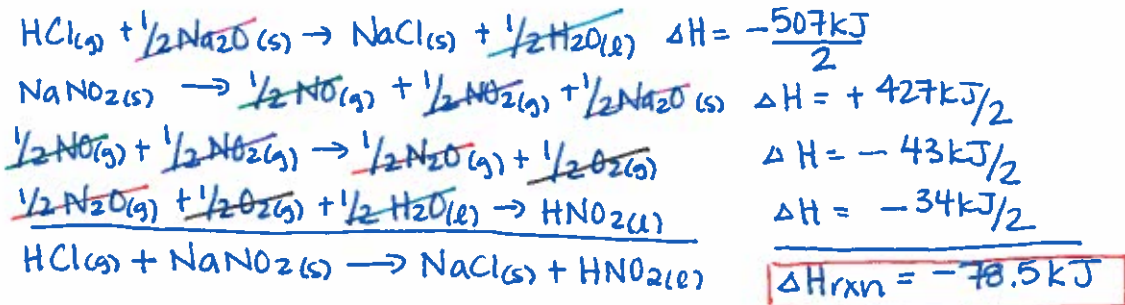 HCl(g) + 1/2 Na2O(s) → NaCl(s) + 1/2 H2O(l) ΔH = -507kJ/2
NaNO2(s) → 1/2 NO(g) + 1/2 NO2(g) + 1/2 Na2O(s) ΔH = + 427kJ/2
1/2 NO(g) + 1/2 NO2(g) → 1/2 N2O(g) + 1/2 O2(g) ΔH = - 43kJ/2
1/2 N2O(g) + 1/2 O2(g) + 1/2 H2O(l) → HNO2(l) ΔH = -34kJ/2
HCl(g) + NaNO2(s) → NaCl(s) + HNO2(l) ΔHrxn = -78.5kJ